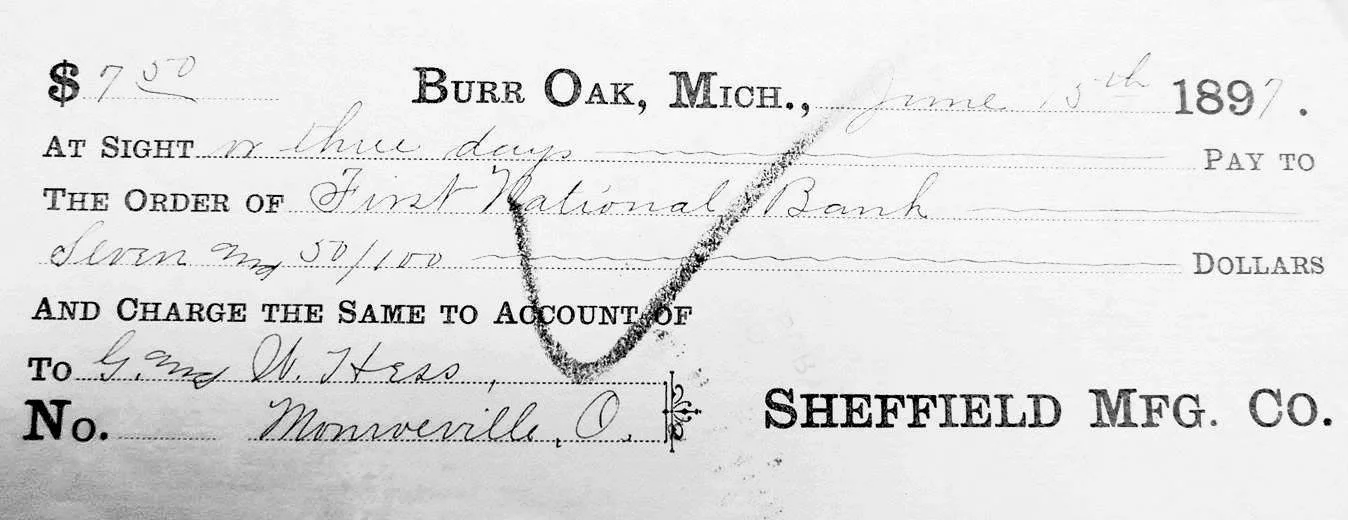 $ 7 50 BURR OAK, MICH., June 15th 1897.
AT SIGHT or three days PAY TO
THE ORDER OF First National Bank
Seven and 50/100 DOLLARS
AND CHARGE THE SAME TO ACCOUNT OF
TO G. and W. Hess,
NO. Monroeville, O. SHEFFIELD MFG. CO.